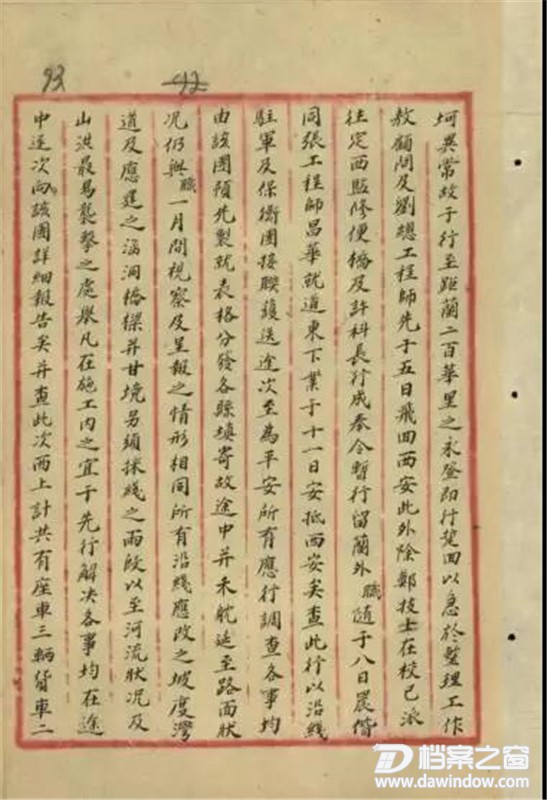 93
92
坷異常故于行至距蘭二百華里之永登即行回以急於整理工作
敖顧問及劉總工程師先于五日飛回西安此外除鄭技士在校已派
往定西監修便橋及許科長行成奉令暫行留蘭外職隨于八日晨偕
同張工程師昌華就道東下業于十一日安抵西安矣查此行以沿綫
駐軍及保衛團接聯護送途次至為平安所有應行調查各事均
由該團預先製就表格分發各縣填寄故途中并未躭延至路面狀
况仍與職一月間視察及呈報之情形相同所有沿綫應改之坡度灣
道及應建之涵洞橋樑并甘境另須採綫之兩段以至河流狀况及
山洪最易襲擊之處舉凡在施工內之宜于先行解决各事均在途
中逐次向該團詳細報告矣并查此次西上計共有座車三輛貨車二
档案之窗
www.dawindow.com